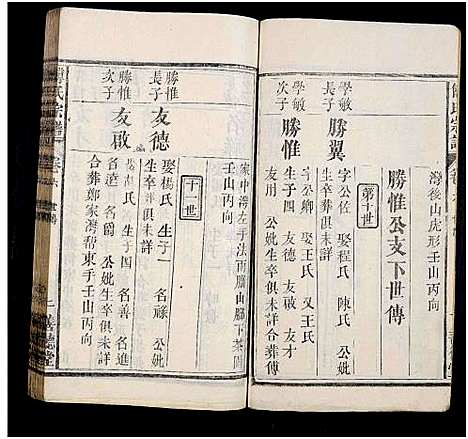 灣後山虎形壬山丙向
勝惟公支下世傳
第十世
學敏
長子
勝翼
字公佐 娶程氏 陳氏 公妣
生卒葬俱未詳
學敏
次子
勝惟
字公卿 娶王氏 又王氏
生子四 友德 友啟 友才
友用 公妣生卒俱未詳合葬傅
家中灣左手法雨廟山廟下茶園
壬山丙向
十一世
勝惟
長子
友德
娶楊氏 生子一 名祿 公妣
生卒葬俱未詳
勝惟
次子
友啟
生子四 名善 名進
名遠 名 公妣生卒俱未詳
合葬鄭家灣幇東手壬山丙向
氏宗譜
善德堂
氏宗譜